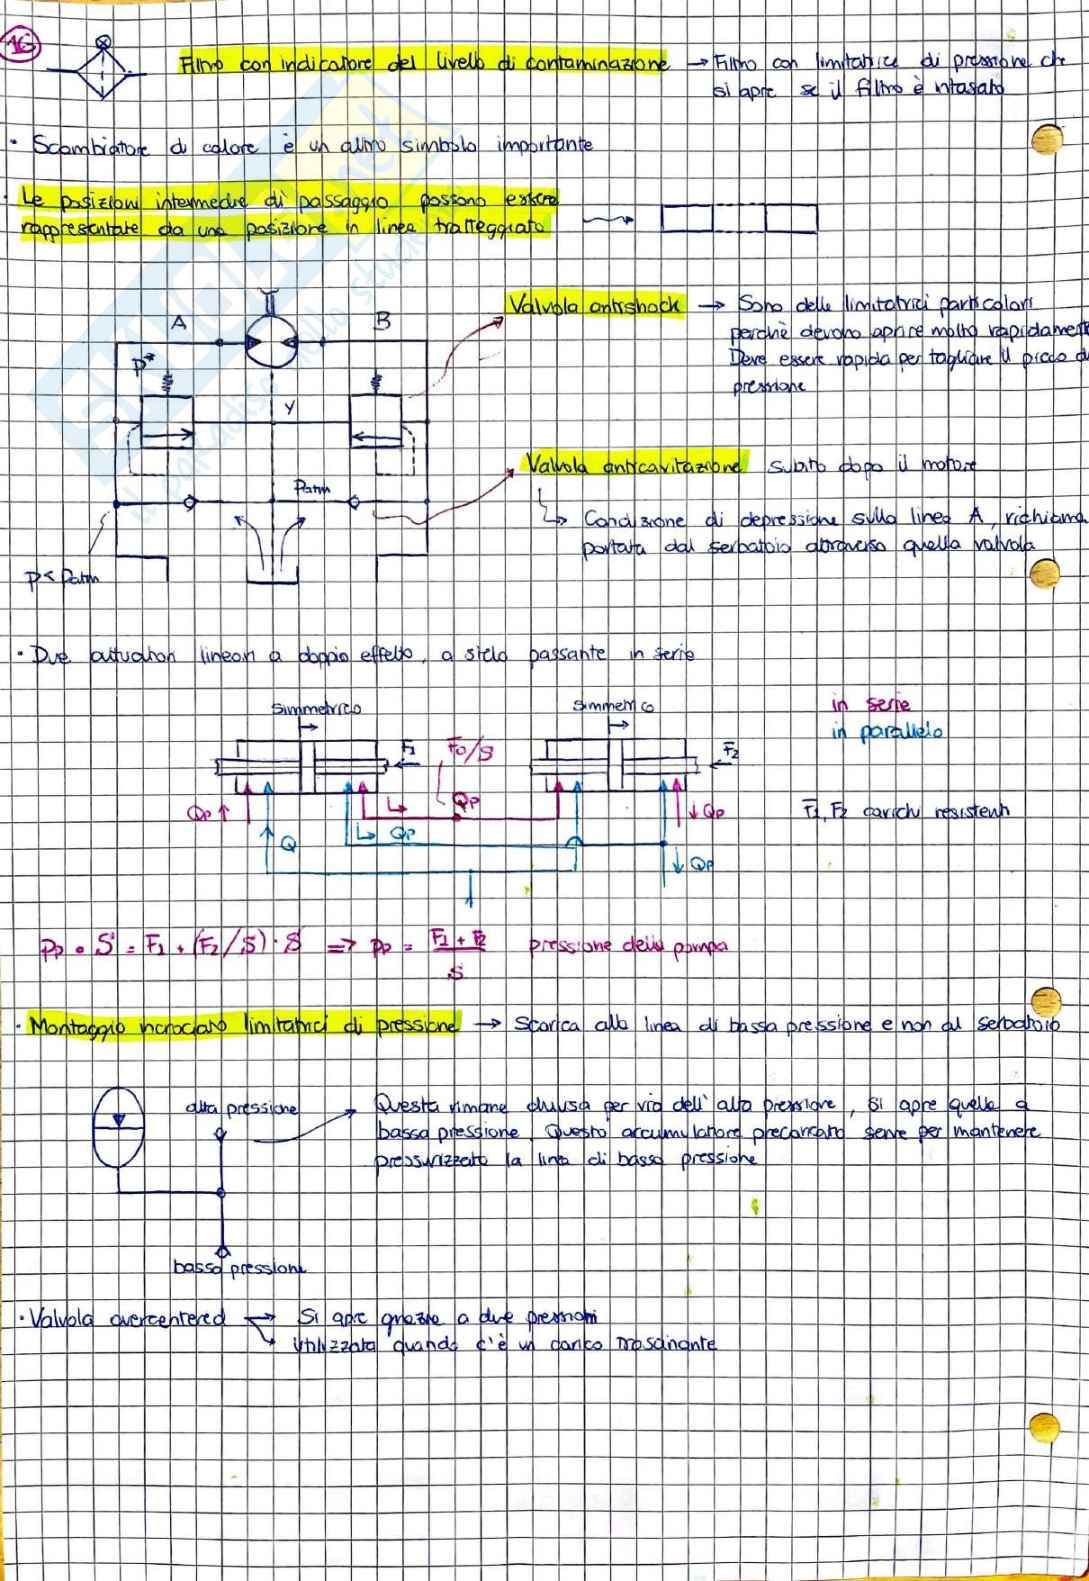 16
Filtro con indicatore del livello di contaminazione → Filtro con limitatrice di pressione che
si apre se il filtro è intasato
• Scambiatore di calore è un altro simbolo importante
• Le posizioni intermedie di passaggio possono essere
rappresentate da una posizione in linea tratteggiata
A
B
Valvola antishock → Sono delle limitatrici particolari
perchè devono aprire molto rapidamente
Deve essere rapida per tagliare il picco di
pressione
P*
Y
Valvola anticavitazione subito dopo il motore
Patm
↳ Condizione di depressione sulla linea A, richiama
portata dal serbatoio attraverso quella valvola
P < Patm
• Due attuatori lineari a doppio effetto, a stelo passante in serie
simmetrico
simmetrico
in serie
in parallelo
F1
F0/S
F2
Qp ↑
Qp
↓ Qp
F1, F2 carichi resistenti
Q
Qp
↓ Qp
Pp • S = F1 + (F2/S) · S => Pp = F1 + F2 / S pressione della pompa
• Montaggio incrociato limitatrici di pressione → Scarica alla linea di bassa pressione e non al serbatoio
alta pressione
Questa rimane chiusa per via dell'alta pressione, si apre quella a
bassa pressione. Questo accumulatore precaricato serve per mantenere
pressurizzato la linea di bassa pressione
bassa pressione
• Valvola overcentered → Si apre grazie a due pressioni
↳ Utilizzata quando c'è un carico trascinante